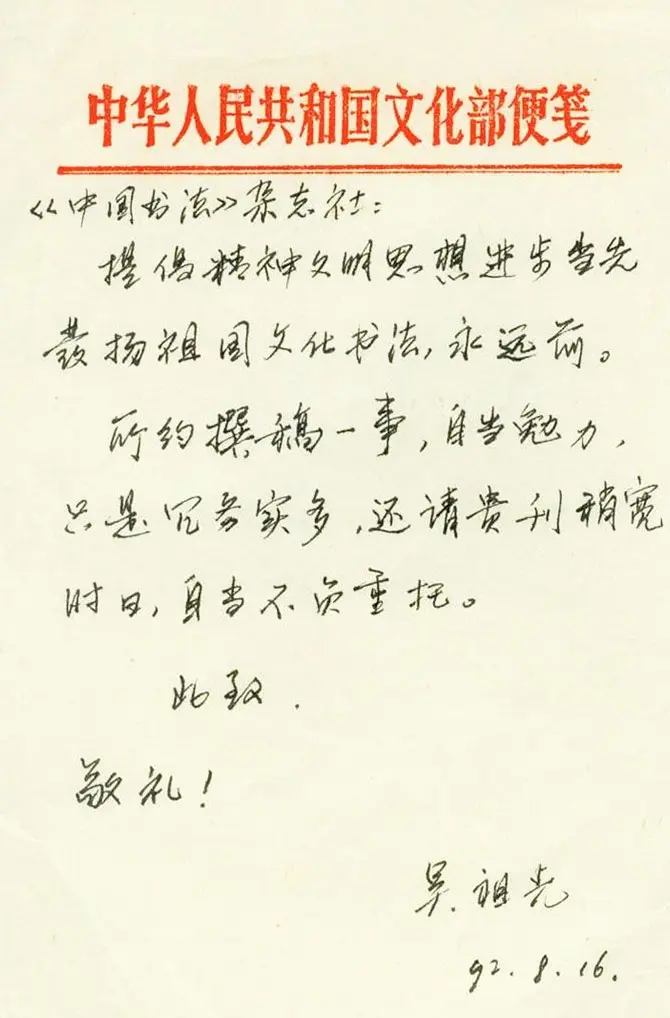 中华人民共和国文化部便笺
《中国书法》杂志社：
提倡精神文明思想进步当先
發扬祖国文化书法，永远前。
所约撰稿一事，自当勉力，
只是冗务实多，还请贵刊稍宽
时日，自当不负重托。
此致.
敬礼！
吴祖光
92.8.16.